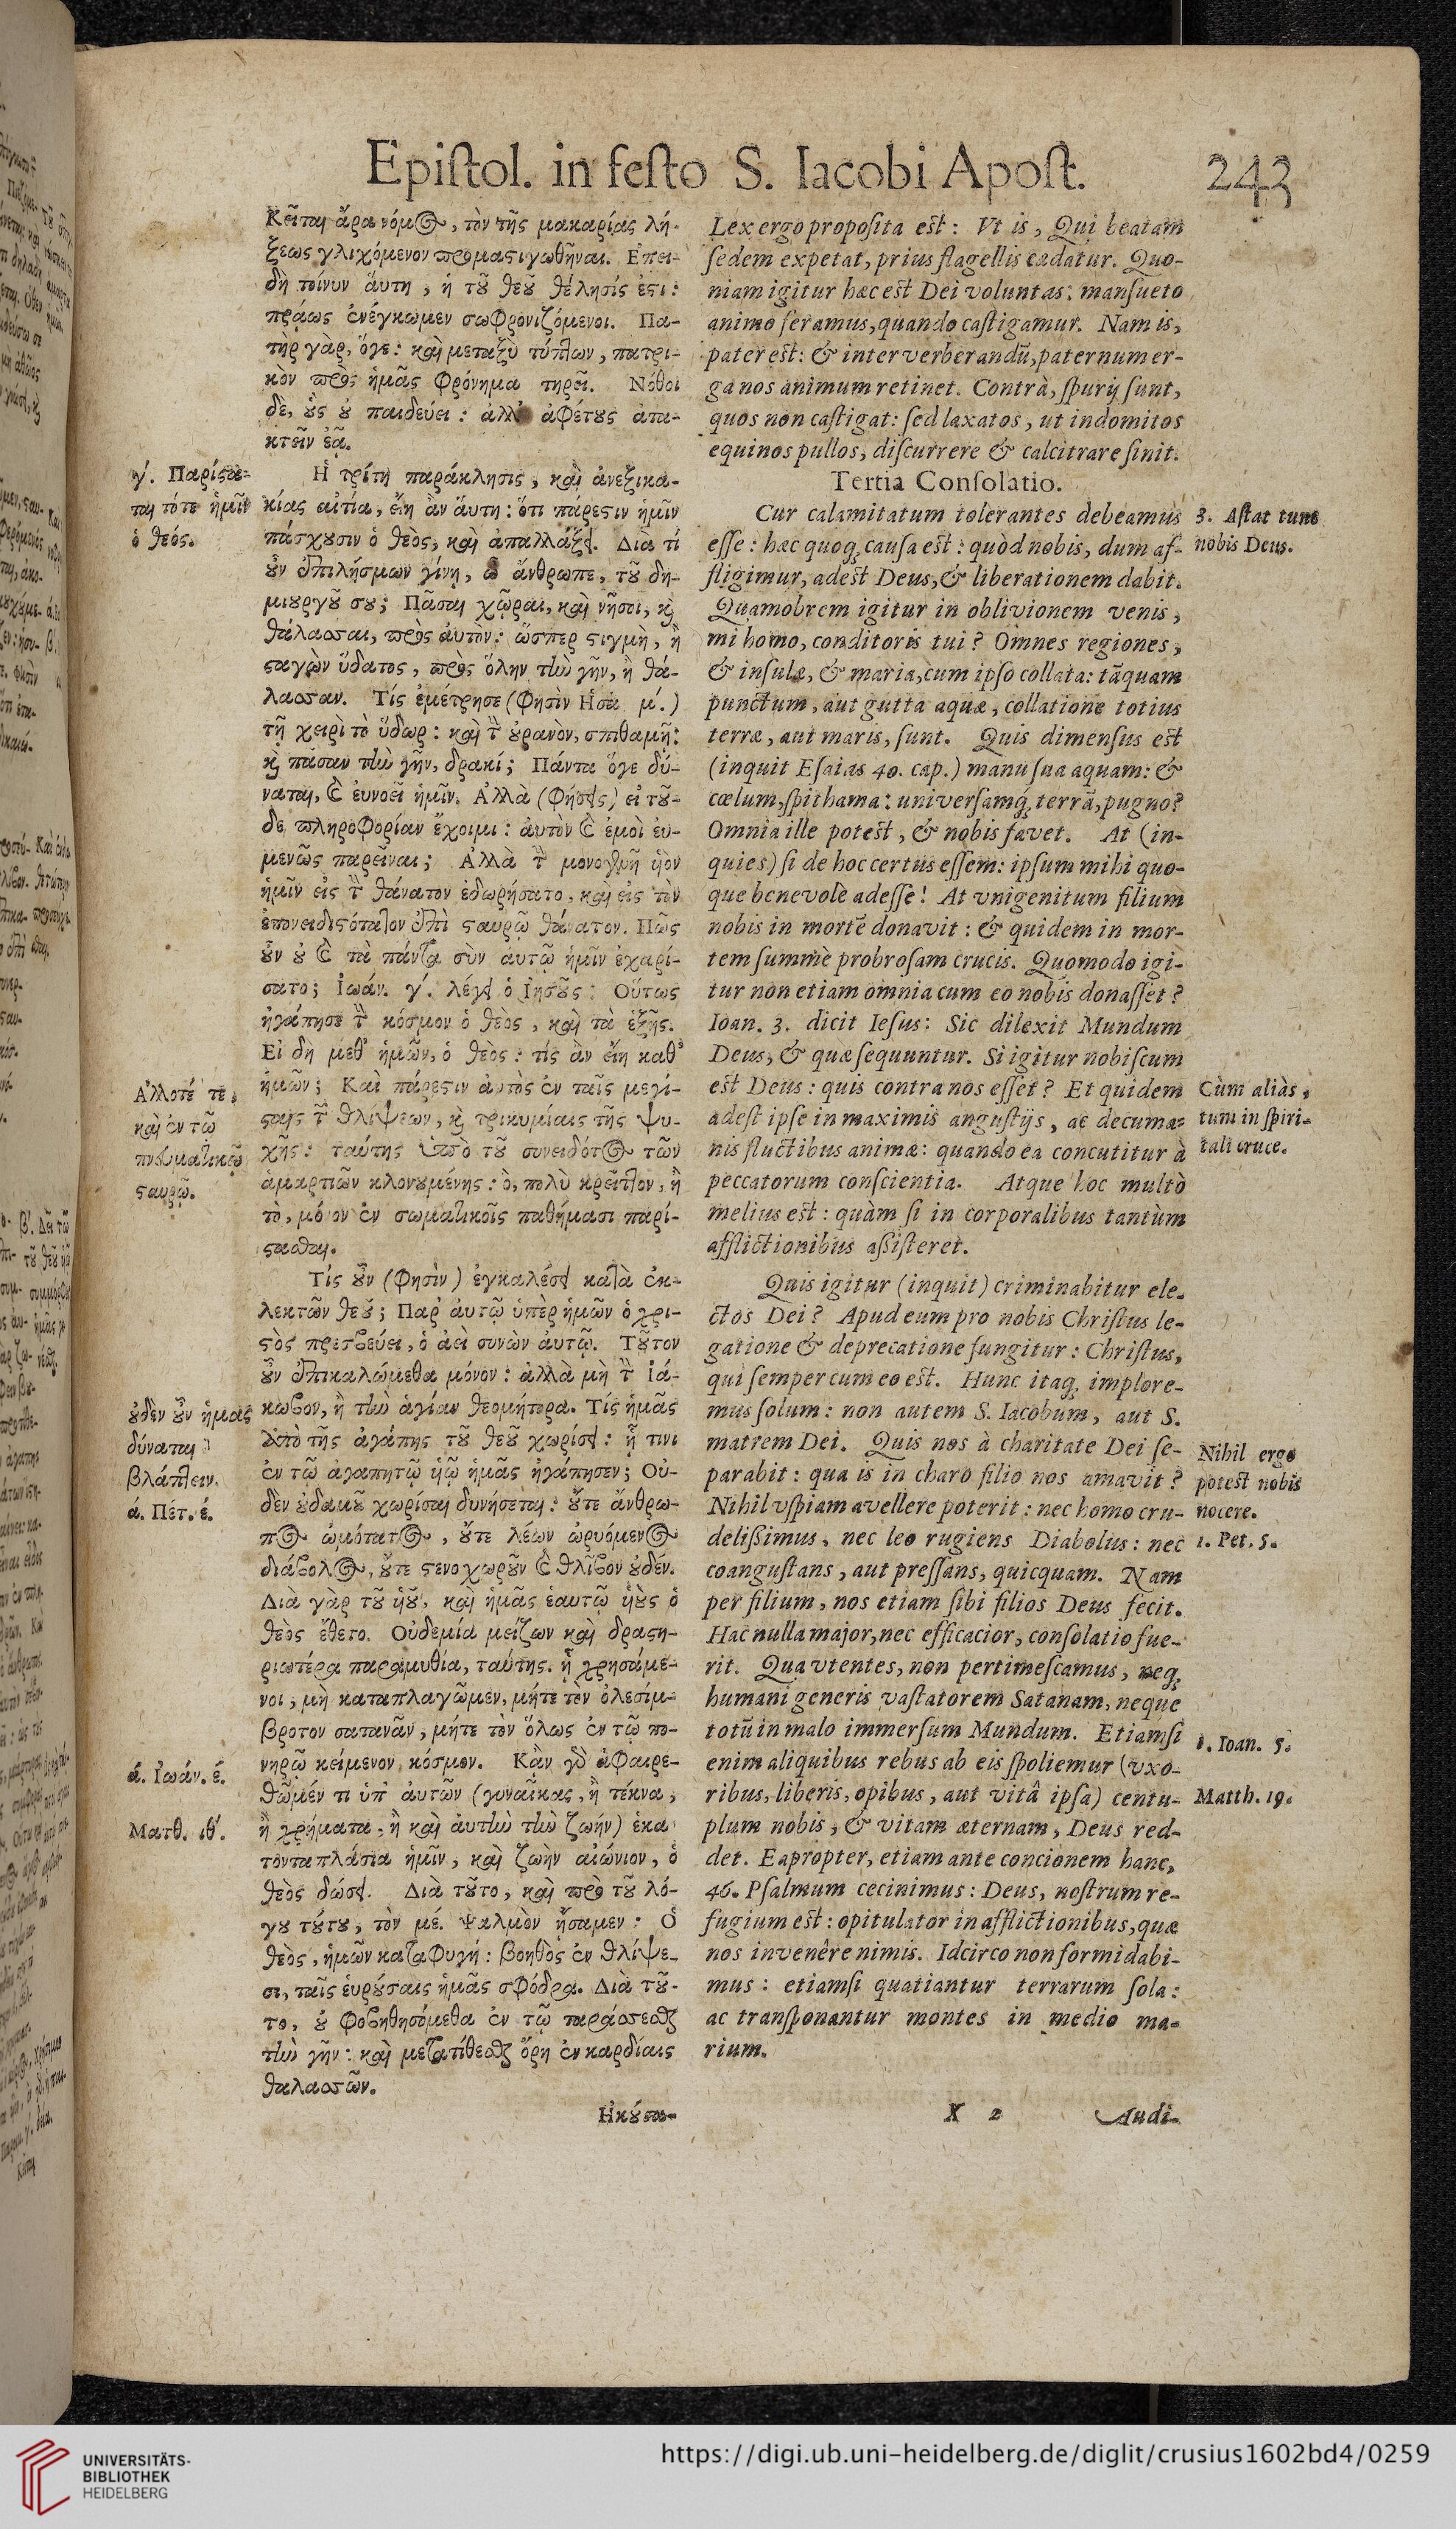 Epiſtol. in feſto S. Iacobi Apoſt. 243
Κεῖται ἄρα νόμος, τὸν τῆς μακαρίας λή-
ξεως γλιχόμενον προμαστιγωθῆναι. Ἐπει-
δὴ τοίνυν ἅυτη, ἡ τοῦ θεοῦ θέλησίς ἐστι:
πράως ἐνέγκωμεν σωφρονιζόμενοι. Πα-
τὴρ γὰρ, ὅγε: καὶ μεταξὺ τύπτων, πατρι-
κὸν πρὸς ἡμᾶς φρόνημα τηρεῖ. Νόθοι
δὲ, οὓς οὐ παιδεύει: ἀλλ' ἀφέτους ἀπα-
κτεῖν ἐᾷ.
γ'. Παρίστα-
ται τότε ἡμῖν
ὁ θεός.
Ἡ τρίτη παράκλησις, καὶ ἀνεξικα-
κίας αἰτία, εἴη ἂν ἅυτη: ὅτι πάρεστιν ἡμῖν
πάσχουσιν ὁ θεὸς, καὶ ἀπαλλάξει. Διὰ τί
οὖν ἐπιλήσμων γίνῃ, ὦ ἄνθρωπε, τοῦ δη-
μιουργοῦ σου; Πᾶσαι χῶραι, καὶ νῆσοι, καὶ
θάλασσαι, πρὸς ἀυτὸν: ὥσπερ στιγμὴ, ἢ
σταγὼν ὕδατος, πρὸς ὅλην τὴν γῆν, ἢ θά-
λασσαν. Τίς ἐμέτρησε (φησὶν Ἡσα μ'.)
τῇ χειρὶ τὸ ὕδωρ: καὶ τὸν οὐρανὸν, σπιθαμῇ:
καὶ πᾶσαν τὴν γῆν, δρακί; Πάντα ὅγε δύ-
ναται, καὶ ἐυνοεῖ ἡμῖν. Ἀλλὰ (φήσεις) εἰ τοῦ-
δε πληροφορίαν ἔχοιμι: ἀυτὸν καὶ ἐμοὶ ἐυ-
μενῶς παρεῖναι; Ἀλλὰ τὸν μονογενῆ υἱὸν
ἡμῖν εἰς τὸν θάνατον ἐδωρήσατο, καὶ εἰς τὸν
ἐπονειδιστότατον ἐπὶ σταυρῷ θάνατον. Πῶς
οὖν οὐ καὶ τὰ πάντα σὺν ἀυτῷ ἡμῖν ἐχαρί-
σατο; Ἰωάν. γ'. λέγει ὁ Ἰησοῦς: Οὕτως
ἠγάπησε τὸν κόσμον ὁ θεὸς, καὶ τὰ ἑξῆς.
Εἰ δὴ μεθ' ἡμῶν, ὁ θεὸς: τίς ἂν εἴη καθ'
ἡμῶν; Καὶ πάρεστιν ἀυτὸς ἐν ταῖς μεγί-
σταις τῶν θλίψεων, καὶ τρικυμίαις τῆς ψυ-
χῆς: ταύτης ὑπὸ τοῦ συνειδότος τῶν
ἁμαρτιῶν κλονουμένης: ὃ, πολὺ κρεῖττον, ἢ
τὸ, μόνον ἐν σωματικοῖς παθήμασι παρί-
στασθαι.
Ἄλλοτέ τε,
καὶ ἐν τῷ
πνευματικῷ
σταυρῷ.
Τίς οὖν (φησὶν) ἐγκαλέσει κατὰ ἐκ-
λεκτῶν θεοῦ; Παρ' ἀυτῷ ὑπὲρ ἡμῶν ὁ χρι-
στὸς πρεσβεύει, ὁ ἀεὶ συνὼν ἀυτῷ. Τοῦτον
οὖν ἐπικαλώμεθα μόνον: ἀλλὰ μὴ τὸν Ἰά-
κωβον, ἢ τὴν ἁγίαν θεομήτορα. Τίς ἡμᾶς
ἀπὸ τῆς ἀγάπης τοῦ θεοῦ χωρίσει: ᾗ τινι
ἐν τῷ ἀγαπητῷ υἱῷ ἡμᾶς ἠγάπησεν; Οὐ-
δὲν οὐδαμοῦ χωρίσαι δυνήσεται: οὔτε ἄνθρω-
πος ὠμότατος, οὔτε λέων ὠρυόμενος
διάβολος, οὔτε στενοχωροῦν καὶ θλῖβον οὐδέν.
Διὰ γὰρ τοῦ υἱοῦ, καὶ ἡμᾶς ἑαυτῷ υἱοὺς ὁ
θεὸς ἔθετο. Οὐδεμία μείζων καὶ δραστη-
ριωτέρα παραμυθία, ταύτης. ᾗ χρησάμε-
νοι, μὴ καταπλαγῶμεν, μήτε τὸν ὀλεσίμ-
βροτον σατανᾶν, μήτε τὸν ὅλως ἐν τῷ πο-
νηρῷ κείμενον κόσμον. Κἂν γὰρ ἀφαιρε-
θῶμέν τι ὑπ' ἀυτῶν (γυναῖκας, ἢ τέκνα,
ἢ χρήματα, ἢ καὶ ἀυτὴν τὴν ζωήν) ἑκα-
τονταπλάσια ἡμῖν, καὶ ζωὴν αἰώνιον, ὁ
θεὸς δώσει. Διὰ τοῦτο, καὶ πρὸ τοῦ λό-
γου τούτου, τὸν μέ. ψαλμὸν ᾖσαμεν: Ὁ
θεὸς, ἡμῶν καταφυγή: βοηθὸς ἐν θλίψε-
σι, ταῖς ἑυρούσαις ἡμᾶς σφόδρα. Διὰ τοῦ-
το, οὐ φοβηθησόμεθα ἐν τῷ ταράσσεσθαι
τὴν γῆν: καὶ μετατίθεσθαι ὄρη ἐν καρδίαις
θαλασσῶν.
οὐδὲν οὖν ἡμᾶς
δύναται
βλάπτειν.
ά. Πέτ. έ.
ά. Ἰωάν. έ.
Ματθ. ιθ'.
Ἠκούσα-
Lex ergo propoſita est: Vt is, Qui beatam
ſedem expetat, prius flagellis cædatur. Quo-
niam igitur hæc est Dei voluntas: manſueto
animo feramus, quando caſtigamur. Nam is,
pater est: & inter verberandū, paternum er-
ga nos animum retinet. Contrà, ſpurij ſunt,
quos non caſtigat: ſed laxatos, ut indomitos
equinos pullos, diſcurrere & calcitrare ſinit.
Tertia Conſolatio.
Cur calamitatum tolerantes debeamus
eſſe: hæc quoq; cauſa est: quòd nobis, dum af-
fligimur, adest Deus, & liberationem dabit.
Quamobrem igitur in oblivionem venis,
mi homo, conditoris tui? Omnes regiones,
& inſulæ, & maria, cum ipſo collata: tāquam
punctum, aut gutta aquæ, collatione totius
terræ, aut maris, ſunt. Quis dimenſus est
(inquit Eſaias 40. cap.) manu ſua aquam: &
cœlum, ſpithama: univerſamq; terrā, pugno?
Omnia ille potest, & nobis favet. At (in-
quies) ſi de hoc certus eſſem: ipſum mihi quo-
que benevolè adeſſe! At vnigenitum filium
nobis in mortē donavit: & quidem in mor-
tem ſummè probroſam crucis. Quomodo igi-
tur non etiam omnia cum eo nobis donaſſet?
Ioan. 3. dicit Ieſus: Sic dilexit Mundum
Deus, & quæ ſequuntur. Si igitur nobiſcum
est Deus: quis contra nos eſſet? Et quidem
adeſt ipſe in maximis anguſtijs, ac decuma-
nis fluctibus animæ: quando ea concutitur à
peccatorum conſcientia. Atque hoc multò
melius est: quàm ſi in corporalibus tantùm
afflictionibus aßiſteret.
3. Aſtat tunc
nobis Deus.
Cùm aliàs,
tum in ſpiri-
tali cruce.
Quis igitur (inquit) criminabitur ele-
ctos Dei? Apud eum pro nobis Chriſtus le-
gatione & deprecatione fungitur: Chriſtus,
qui ſemper cum eo est. Hunc itaq; implore-
mus ſolum: non autem S. Iacobum, aut S.
matrem Dei. Quis nos à charitate Dei ſe-
parabit: qua is in charo filio nos amavit?
Nihil vſpiam avellere poterit: nec homo cru-
delißimus, nec leo rugiens Diabolus: nec
coanguſtans, aut preſſans, quicquam. Nam
per filium, nos etiam ſibi filios Deus fecit.
Hac nulla major, nec efficacior, conſolatio fue-
rit. Qua vtentes, non pertimeſcamus, neq;
humani generis vaſtatorem Satanam, neque
totū in malo immerſum Mundum. Etiamſi
enim aliquibus rebus ab eis ſpoliemur (vxo-
ribus, liberis, opibus, aut vitâ ipſa) centu-
plum nobis, & vitam æternam, Deus red-
det. Eapropter, etiam ante concionem hanc,
46. Pſalmum cecinimus: Deus, noſtrum re-
fugium est: opitulator in afflictionibus, quæ
nos invenêre nimis. Idcirco non formidabi-
mus: etiamſi quatiantur terrarum ſola:
ac tranſponantur montes in medio ma-
rium.
Nihil ergo
potest nobis
nocere.
1. Pet. 5.
1. Ioan. 5.
Matth. 19.
X 2 Audi-
UNIVERSITÄTS-
BIBLIOTHEK
HEIDELBERG
https://digi.ub.uni-heidelberg.de/diglit/crusius1602bd4/0259